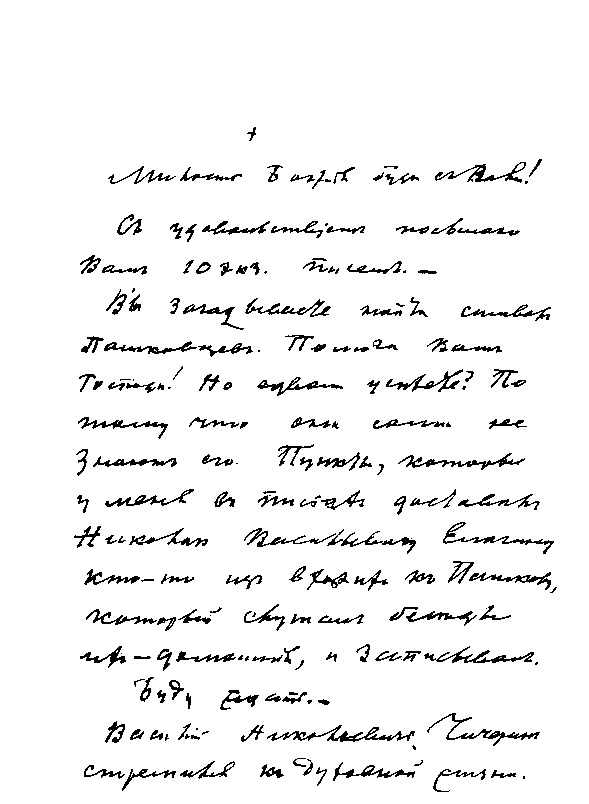 +
Милость Божія буди съ Вами!
Съ удовольствіемъ посылаю
Вамъ 10 экз. писемъ. —
Вы загадываете найти символъ
Пашковцевъ. Помоги Вамъ
Господи! Но едвали успѣете? По
тому что они сами не
знаютъ его. Пункты, которые
у меня въ письмѣ доставлены
Николаю Васильевичу Елагину
кто-то изъ вхожихъ къ Пашкову,
который слушалъ бесѣды
его – , и записывалъ.
Буду ждать. –
Василій Николаевичъ Чичеринъ
стремится къ духовной жизни.